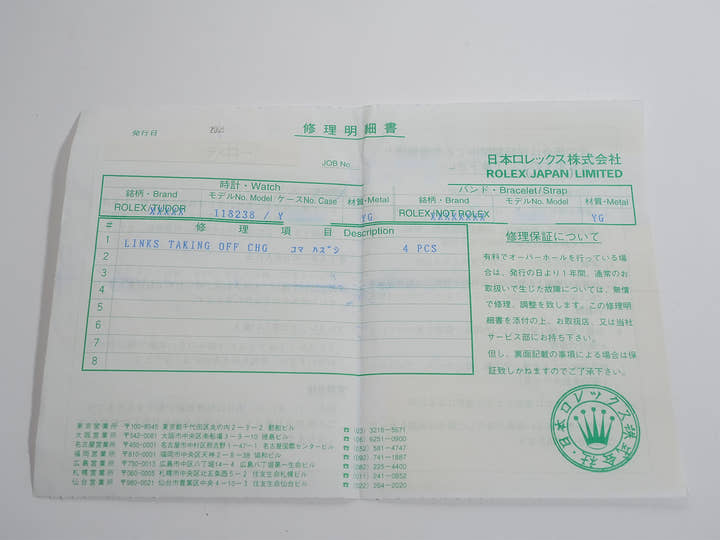 修理明細書
発行日
JOB No.
日本ロレックス株式会社
ROLEX (JAPAN) LIMITED
時計・Watch
バンド・Bracelet/Strap
銘柄・Brand モデルNo. Model ケースNo. Case 材質・Metal 銘柄・Brand モデルNo. Model 材質・Metal
ROLEX/TUDOR 118238 / Y YG ROLEX/NOT ROLEX YG
# 修理項目 Description
1 LINKS TAKING OFF CHG コマ ハズシ 4 PCS
2
3
4
5
6
7
8
修理保証について
有料でオーバーホールを行っている場
合は、発行の日より1年間、通常のお
取扱いで生じた故障については、無償
で修理、調整を致します。この修理明
細書を添付の上、お取扱店、又は当社
サービス部にお持ち下さい。
但し、裏面記載の事項による場合は保
証致しかねますのでご了承下さい。
日本ロレックス株式会社・
東京営業所 〒100-8345 東京都千代田区丸の内2-3-2 郵船ビル ☎(03) 3216-5671
大阪営業所 〒542-0081 大阪市中央区南船場3-11-10 ☎(06) 6251-0900
名古屋営業所 〒450-0001 名古屋市中村区那古野1-47-1 名古屋国際センタービル ☎(052) 581-4747
福岡営業所 〒810-0001 福岡市中央区天神2-8-38 協和ビル ☎(092) 741-1887
広島営業所 〒730-0013 広島市中区八丁堀14-4 広島八丁堀第一生命ビル ☎(082) 225-4400
札幌営業所 〒060-0005 札幌市中央区北五条西5-2 住友生命札幌ビル ☎(011) 241-0852
仙台営業所 〒980-0021 仙台市青葉区中央4-10-3 住友生命仙台ビル ☎(022) 264-2020